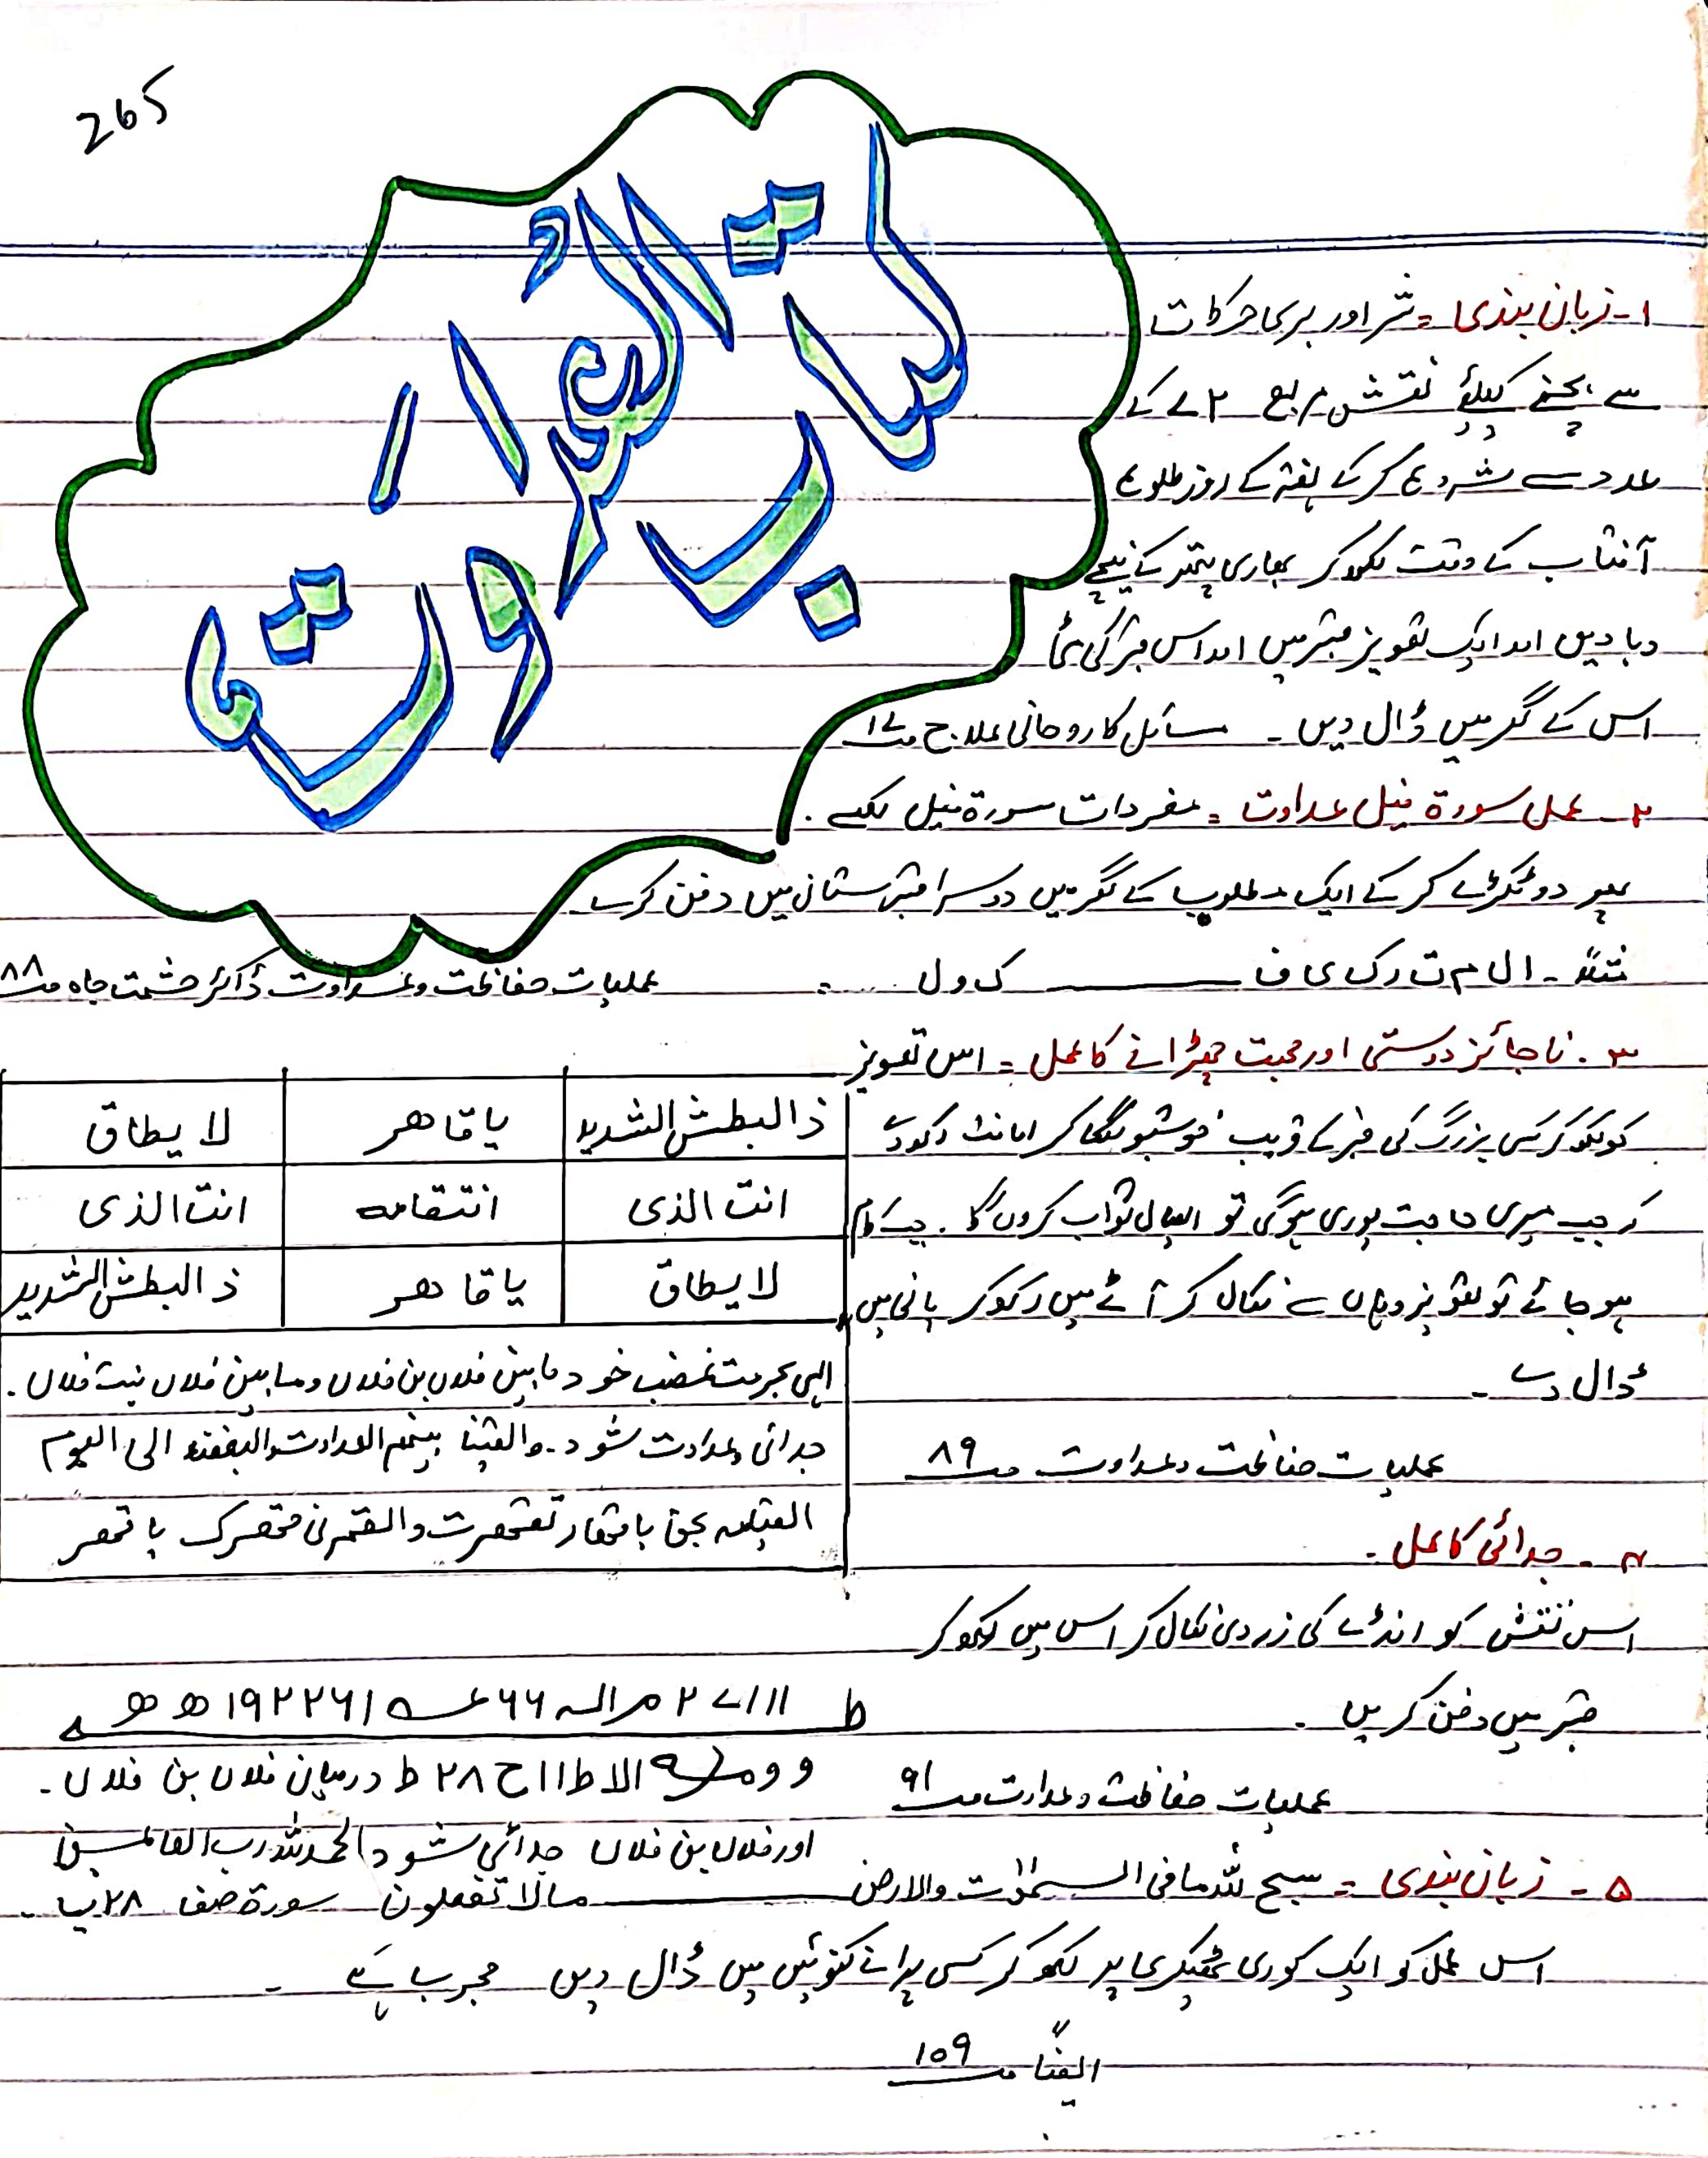 265
کتاب العداوت
۱۔ زبان بندی = شر اور بری حرکات
سے بچنے کیلئے نقش مربع ۷۲ کے
عدد سے شروع کرکے ہفتہ کے روز طلوع
آفتاب کے وقت لکھ کر بھاری پتھر کے نیچے
دبا دیں اور ایک تعویز قبر میں اور اس قبر کی
اس کے گھر میں ڈال دیں ۔ مسائل کا روحانی علاج
۲۔ عمل سورۃ فیل عداوت = مفردات سورۃ فیل لکھے ۔
پھر دو ٹکڑے کر کے ایک مطلوب کے گھر میں دوسرا قبرستان میں دفن کرے
مثلاً ۔ ا ل م ت ر ک ی ف ــــــ ک و ل ۔
عملیات حفاظت و عداوت ڈاکٹر حشمت جاہ صـ ۸۸
۳۔ ناجائز دوستی اور محبت چھڑانے کا عمل = اس تعویز
کو لکھ کر کسی بزرگ کی قبر کے قریب خوشبو لگا کر امانت رکھ دے
کہ جب میری حاجت پوری ہوگی تو ایصال ثواب کروں گا ۔ جب کام
ہو جائے تو تعویز وہاں سے نکال کر آٹے میں رکھ کر پانی میں
ڈال دے ۔
عملیات حفاظت و عداوت صـ ۸۹
ذالبطش الشدید یا قاھر لا یطاق
انت الذی انتقامہ انت الذی
لا یطاق یا قاھر ذالبطش الشدید
الہی بحرمت غضب خود مابین فلاں بن فلاں و مابین فلاں بنت فلاں ۔
جدائی و عداوت شود ۔ والقینا بینھم العداوت والبغضہ الی الیوم
القیامہ بحق یا قھار تقھرت والقھر فی قھرک یا قھر
۴۔ جدائی کا عمل ۔
اس نقش کو انڈے کی زردی نکال کر اس میں لکھ کر
قبر میں دفن کریں ۔
عملیات حفاظت و عداوت صـ ۹۱
درمیان فلاں بن فلاں ۔
اور فلاں بن فلاں جدائی شود الحمدللہ رب العالمین
۵۔ زبان بندی = سبح للہ مافی السمٰوٰت والارض ــــــ مالا تفعلون سورۃ صف پ ۲۸ ۔
اس عمل کو ایک کوری ٹھیکری پر لکھ کر کسی پرانے کنوئیں میں ڈال دیں مجرب ہے ۔
ایضاً صـ ۱۵۹